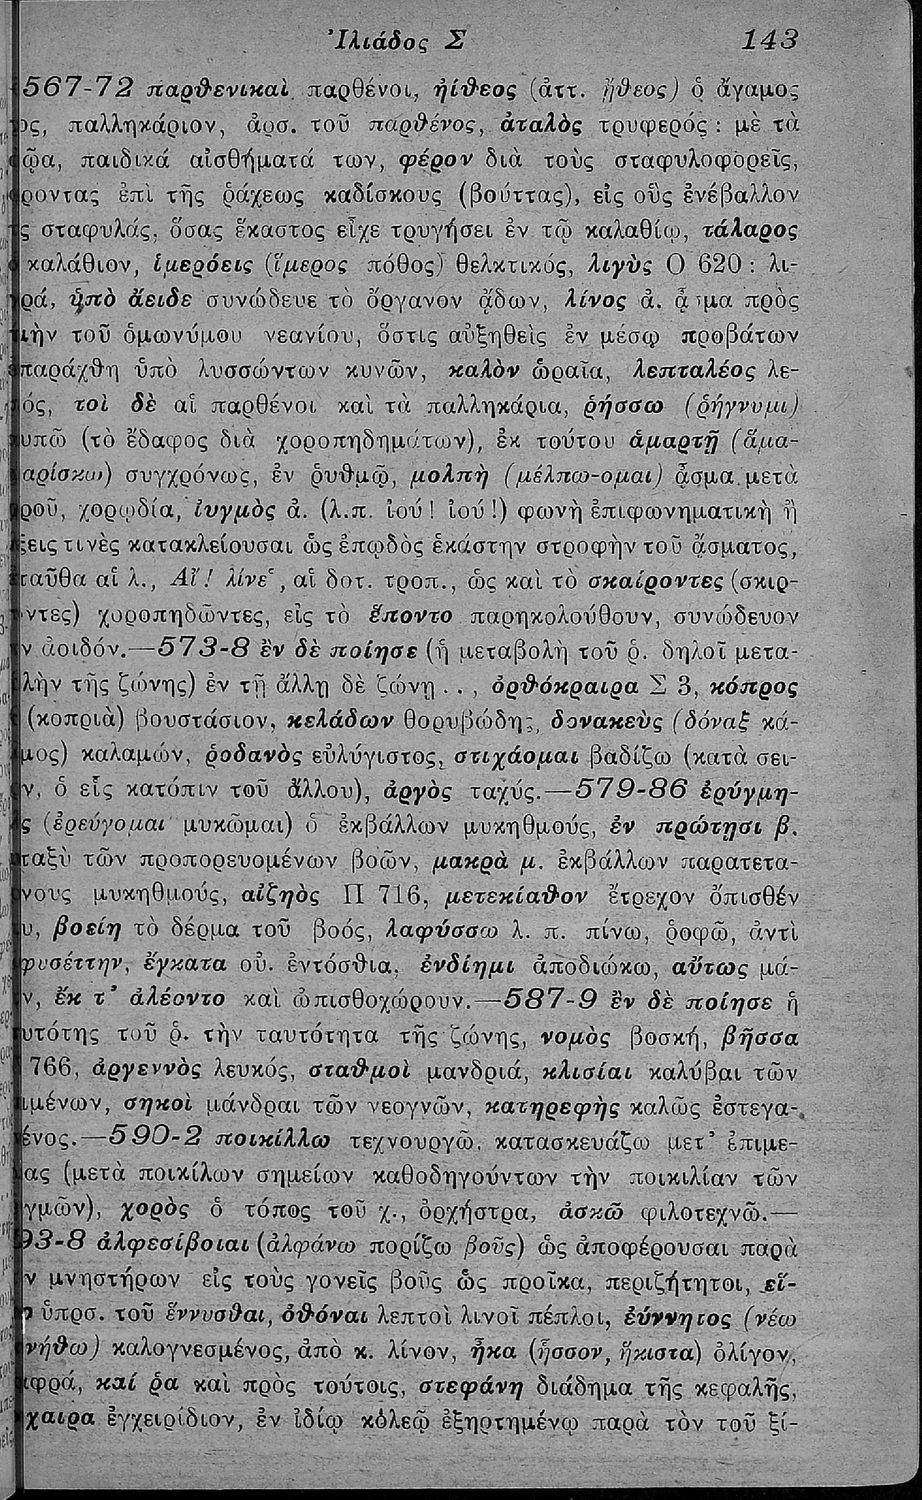 Ἰλιάδος Σ 143
567-72 παρθενικαὶ παρθένοι, ἠίθεος (ἀττ. ᾔθεος) ὁ ἄγαμος
παλληκάριον, ἀρσ. τοῦ παρθένος, ἀταλὸς τρυφερός : μὲ τὰ
παιδικά αἰσθήματά των, φέρον διὰ τοὺς σταφυλοφορεῖς,
ἐπὶ τῆς ῥάχεως καδίσκους (βούττας), εἰς οὓς ἐνέβαλλον
σταφυλάς, ὅσας ἕκαστος εἶχε τρυγήσει ἐν τῷ καλαθίῳ, τάλαρος
καλάθιον, ἱμερόεις (ἵμερος πόθος) θελκτικός, λιγὺς Ο 620 : λι-
ρά, ὑπὸ ἄειδε συνώδευε τὸ ὄργανον ᾄδων, λίνος ἀ. ᾆσμα πρὸς
τοῦ ὁμωνύμου νεανίου, ὅστις αὐξηθεὶς ἐν μέσῳ προβάτων
παράχθη ὑπὸ λυσσώντων κυνῶν, καλὸν ὡραῖα, λεπταλέος λε-
ός, τοὶ δὲ αἱ παρθένοι καὶ τὰ παλληκάρια, ῥήσσω (ῥήγνυμι)
υπῶ (τὸ ἔδαφος διὰ χοροπηδημάτων), ἐκ τούτου ἁμαρτῇ (ἅμα-
αρίσκω) συγχρόνως, ἐν ῥυθμῷ, μολπὴ (μέλπω-ομαι) ᾆσμα μετὰ
ροῦ, χορῳδία, ἰυγμὸς ἀ. (λ.π. ἰού! ἰού!) φωνὴ ἐπιφωνηματικὴ ἢ
ξεις τινὲς κατακλείουσαι ὡς ἐπῳδὸς ἑκάστην στροφὴν τοῦ ᾄσματος,
ταῦθα αἱ λ., Αἴ! λίνε, αἱ δοτ. τροπ., ὡς καὶ τὸ σκαίροντες (σκιρ-
ντες) χοροπηδῶντες, εἰς τὸ ἕποντο παρηκολούθουν, συνώδευον
ν ἀοιδόν.—573-8 ἐν δὲ ποίησε (ἡ μεταβολὴ τοῦ ῥ. δηλοῖ μετα-
λὴν τῆς ζώνης) ἐν τῇ ἄλλῃ δὲ ζώνῃ . . , ὀρθόκραιρα Σ 3, κόπρος
(κοπριὰ) βουστάσιον, κελάδων θορυβώδης, δονακεὺς (δόναξ κά-
μος) καλαμών, ῥοδανὸς εὐλύγιστος, στιχάομαι βαδίζω (κατὰ σει-
ν, ὁ εἷς κατόπιν τοῦ ἄλλου), ἀργὸς ταχύς.—579-86 ἐρύγμη-
ς (ἐρεύγομαι μυκῶμαι) ὁ ἐκβάλλων μυκηθμούς, ἐν πρώτῃσι β.
ταξὺ τῶν προπορευομένων βοῶν, μακρὰ μ. ἐκβάλλων παρατετα-
νους μυκηθμούς, αἰζηὸς Π 716, μετεκίαθον ἔτρεχον ὄπισθέν
υ, βοείη τὸ δέρμα τοῦ βοός, λαφύσσω λ. π. πίνω, ῥοφῶ, ἀντὶ
φυσέττην, ἔγκατα οὐ. ἐντόσθια, ἐνδίημι ἀποδιώκω, αὔτως μά-
ν, ἔκ τ' ἀλέοντο καὶ ὠπισθοχώρουν.—587-9 ἐν δὲ ποίησε ἡ
υτότης τοῦ ῥ. τὴν ταυτότητα τῆς ζώνης, νομὸς βοσκή, βῆσσα
766, ἀργεννὸς λευκός, σταθμοὶ μανδριά, κλισίαι καλύβαι τῶν
ιμένων, σηκοὶ μάνδραι τῶν νεογνῶν, κατηρεφὴς καλῶς ἐστεγα-
ένος.—590-2 ποικίλλω τεχνουργῶ, κατασκευάζω μετ' ἐπιμε-
ας (μετὰ ποικίλων σημείων καθοδηγούντων τὴν ποικιλίαν τῶν
γμῶν), χορὸς ὁ τόπος τοῦ χ., ὀρχήστρα, ἀσκῶ φιλοτεχνῶ.—
93-8 ἀλφεσίβοιαι (ἀλφάνω πορίζω βοῦς) ὡς ἀποφέρουσαι παρὰ
ν μνηστήρων εἰς τοὺς γονεῖς βοῦς ὡς προῖκα, περιζήτητοι, εἵ-
ὑπρσ. τοῦ ἕννυσθαι, ὀθόναι λεπτοὶ λινοῖ πέπλοι, ἐύννητος (νέω
νήθω) καλογνεσμένος, ἀπὸ κ. λίνον, ἦκα (ἧσσον, ἥκιστα) ὀλίγον,
φρά, καί ῥα καὶ πρὸς τούτοις, στεφάνη διάδημα τῆς κεφαλῆς,
χαιρα ἐγχειρίδιον, ἐν ἰδίῳ κόλεῷ ἐξηρτημένῳ παρὰ τὸν τοῦ ξί-